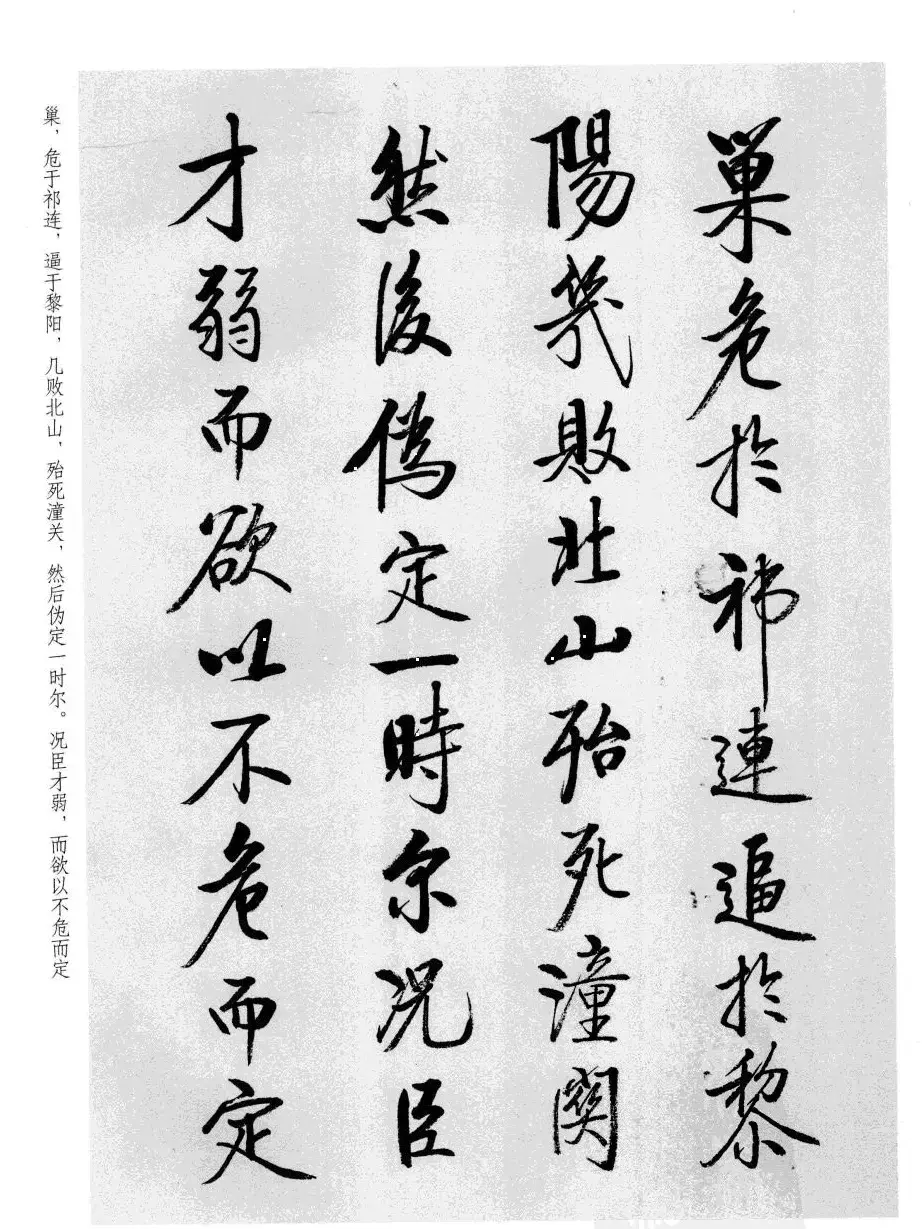 巢危於祁連逼於黎
陽幾敗北山殆死潼関
然後偽定一時尓況臣
才弱而欲以不危而定
巢，危于祁连，逼于黎阳，几败北山，殆死潼关，然后伪定一时尔。况臣才弱，而欲以不危而定